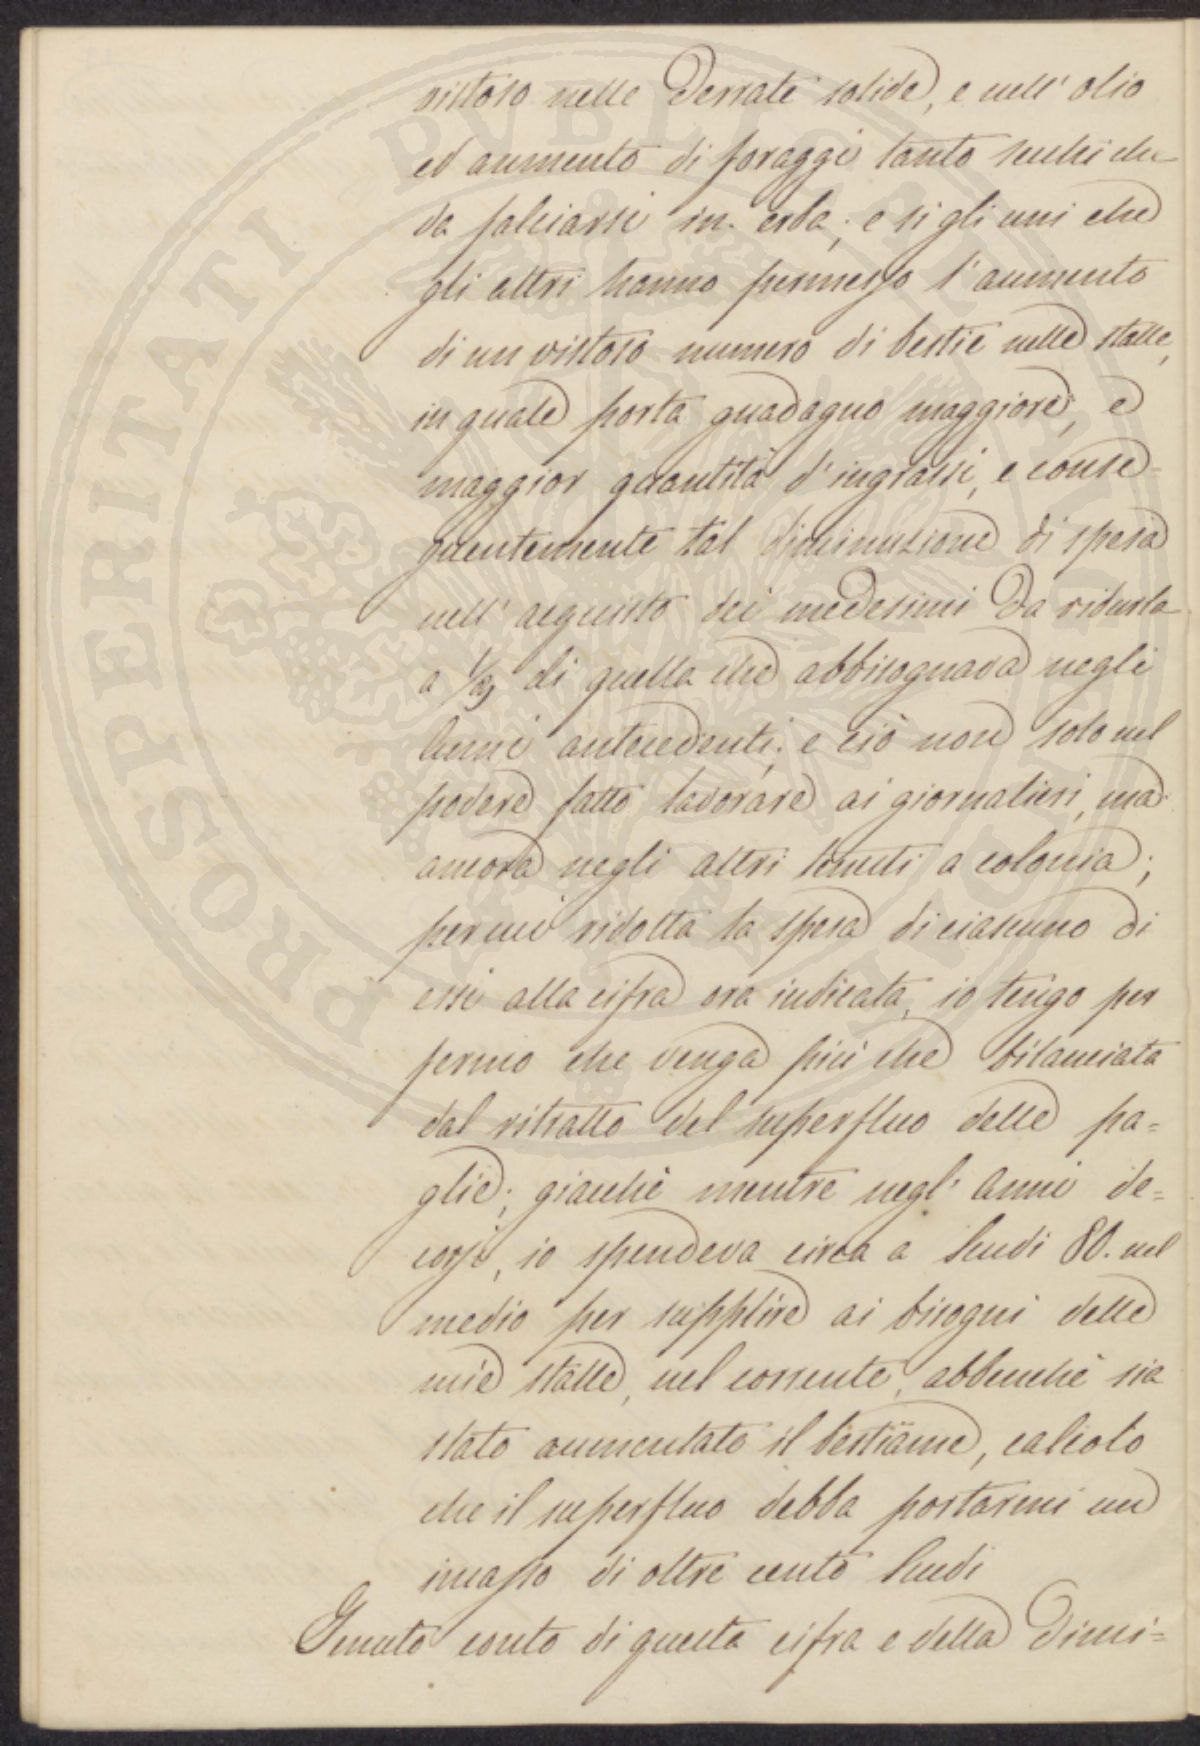 vistoso nelle Derrate solide, e nell' olio
ed aumento di foraggi tanto secchi che
da falciarsi in erba; e sì gli uni che
gli altri hanno permesso l'aumento
di un vistoso numero di bestie nelle stalle,
in quale porta guadagno maggiore, e
maggior quantità d'ingrassi, e conse=
guentemente tal diminuzione di spesa
nell' acquisto dei medesimi Da ridurla
a di quella che abbisognava negli
Anni antecedenti; e ciò non solo nel
podere fatto lavorare ai giornalieri, ma
ancora negli altri tenuti a colonia;
per cui ridotta la spesa di ciascuno di
essi alla cifra ora indicata, io tengo per
fermo che venga più che bilanciata
dal ritratto del superfluo delle pa=
glie; giacchè mentre negl' Anni de=
corsi, io spendeva circa a Scudi 80. nel
medio per supplire ai bisogni delle
mie stalle, nel corrente, abbenchè sia
stato aumentato il bestiame, calcolo
che il superfluo debba portarmi un
incasso di oltre cento Scudi
Tenuto conto di questa cifra e della Dimi=
PROSPERITATI PVBLICAE AVGENDAE